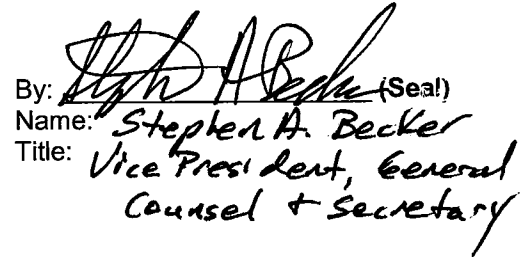 By: Stephen A Becker (Seal)
Name: Stephen A. Becker
Title: Vice President, General
Counsel + Secretary